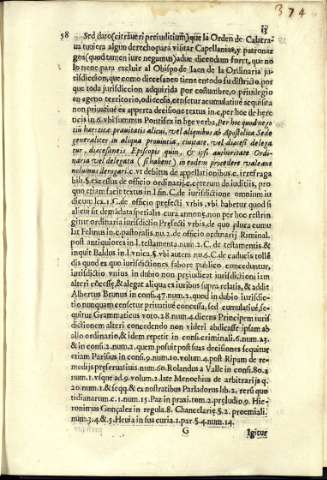 374
13
58 Sed dato (citra ve rĩ preiuditium) que la Orden de Calatra-
ua tuuiera algun derecho para visitar Capellanias, y patronaz-
gos (quod tamen iure negamus) adue dicendum foret, que no
lo tiene para excluir al Obispo de Iaen de la Ordinaria ju-
risdiccion, que como diocesano tiene en todo su distrito, por
que toda jurisdiccion adquirida por costumbre, o privilegio
en ageno territorio, o diocesi, censetur acumulatiue acquisita
non priuatiue ex aperta decisione textus in c. per hoc de hære
ticis in 6. vbi summus Pontifex in hæc verba. Per hoc quod ne go
tiũ hæreticæ prauitatis alicui, vel aliquibus ab Apostolica Sede
generaliter in aliqua prouincia, ciuitate, vel diœcesi delega
tur, diœcesanis Episcopis quin, & ipsi authoritate Ordi-
naria vel delegata (si habent) in eodem procedere valeant
nolumus derogari. c. vt debitus de appellationibus. c. irrefraga
bili. §. excessus de officio ordinarij. cæterum
quo etiam facit textus in l. sin. C. de jurisdictione omnium iu
dicum l. 1. C. de officio præfecti vrbis. vbi habetur quod si
alicui sit demandata specialis cura annonę non per hoc restrin
gitur ordinaria jurisdictio Præfecti vrbis, de quo plura cumu
lat Felinus in c. pastoralis. nu. 2. de officio ordinarij Riminal.
post antiquiores in l. testamenta. num. 2. C. de testamentis. &
inquit Baldos in l. vnica. §. vbi autem nu. 6. C. de caducis tollẽ
dis quod ex quo iurisdictiones fauore publico conceduntur,
iurisdictio vnius in dubio non preiudicat jurisdictioni item
alteri cõcesse, & alegat aliqua ex iuribus supra relatis, & addit
Albertus Brunus in cons. 47. num. 2. quod in dubio iurisdic-
tio nunquam censetur priuatiue concessa, sed cumulatiue, se-
quitur Grammaticus voto. 28. num. 4. dicens Principem iuris
dictionem alteri concedendo non videri abdicasse ipsam ab
olio ordinario, & idem repetit in cons. criminali. 6. num. 23.
& in cons. 2. num. 2. quem posuit post suas decisiones sequitur
etiam Parisius in cons. 9. num. 10. volum. 4. post Ripam de re-
medijs preseruatiuis num. 60. Rolandus à Valle in cons. 80. à
num. 1. vsque ad 9. volum. 2. late Menochius de arbitrarijs q.
20. num. 1. & seqq. & ex nostratibus Parladorus lib. 2. rerũ quo
tidianarum. c. 1. num. 15. Paz in praxi. tom. 2. preludio. 9. Hie-
ronimus Gonçalez in regula. 8. Chancelariæ §. 2. proemiali.
num. 34. & 3. Heuia in sua curia 1. par. §. 4. num. 14.
G Igitur